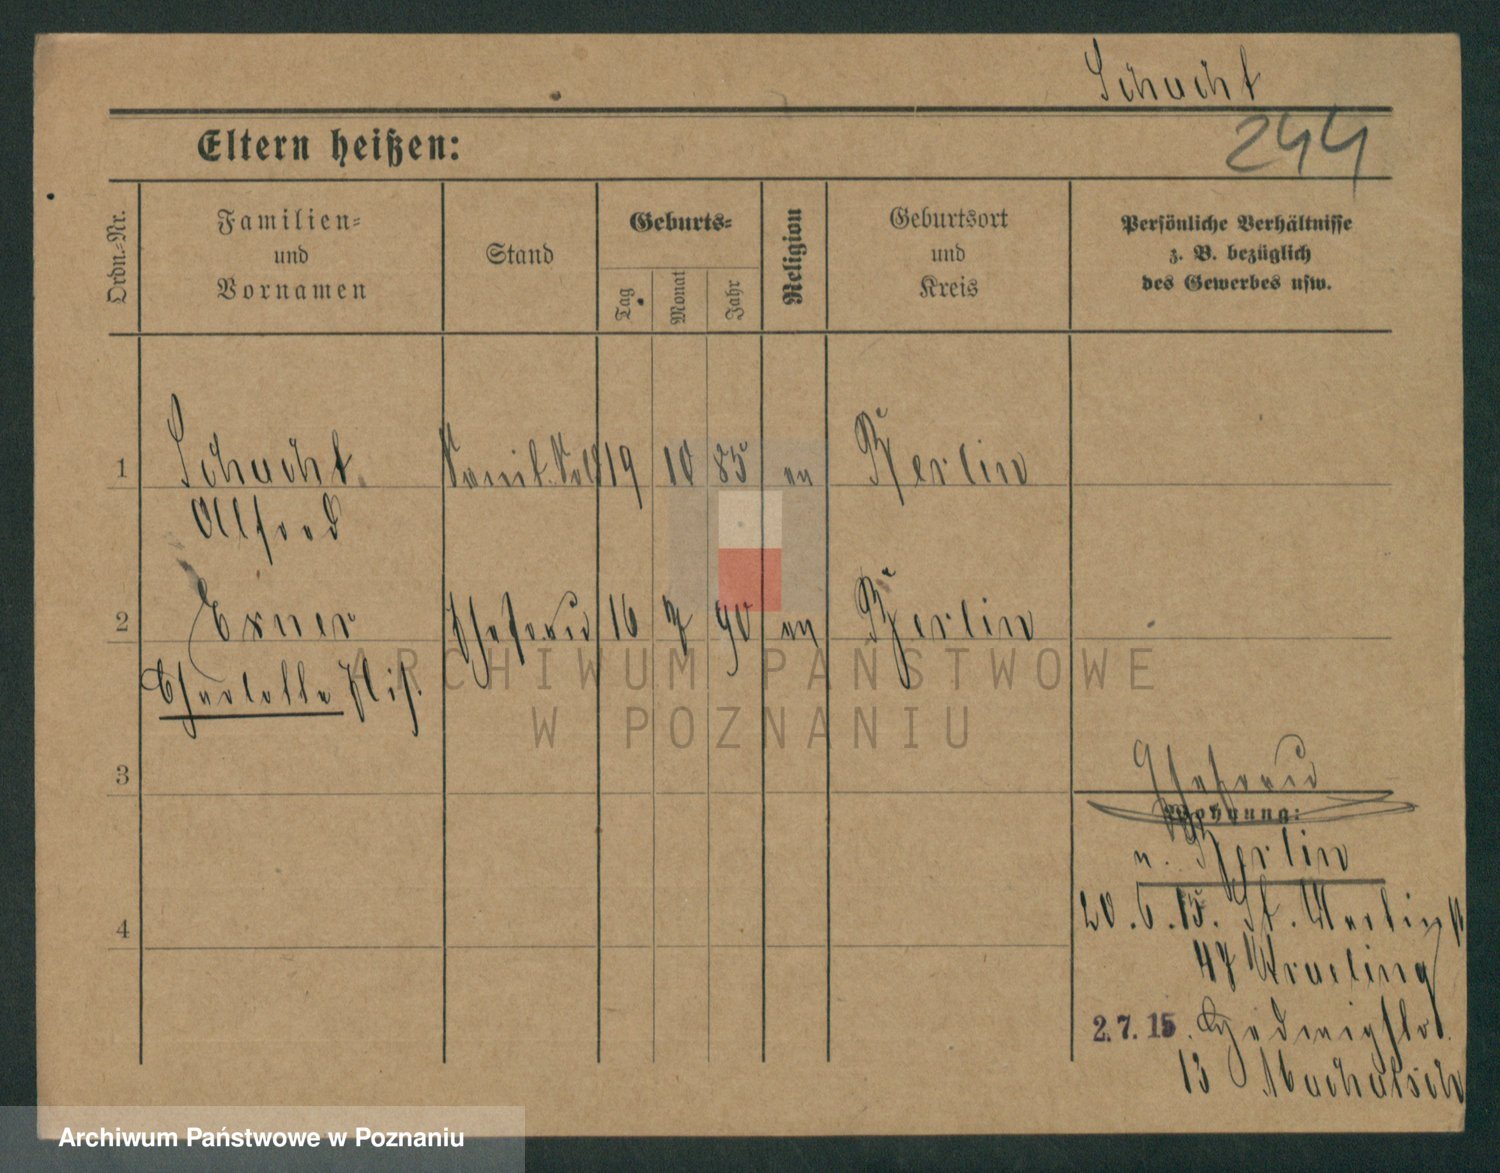 Schacht
244
Eltern heißen:
Ordn.-Nr.
Familien-
und
Vornamen
Stand
Geburts-
Tag
Monat
Jahr
Religion
Geburtsort
und
Kreis
Persönliche Verhältnisse
z. B. bezüglich
des Gewerbes usw.
1 Schacht 19 10 85 ev Berlin
Alfred
2 Exner Ehefrau 16 7 90 ev Berlin
Charlotte
ARCHIWUM PAŃSTWOWE
W POZNANIU
3
Ehefrau
Wohnung:
v. Berlin
4
20. 6. 15. St. Martin
47
2. 7. 15.
13
Archiwum Państwowe w Poznaniu